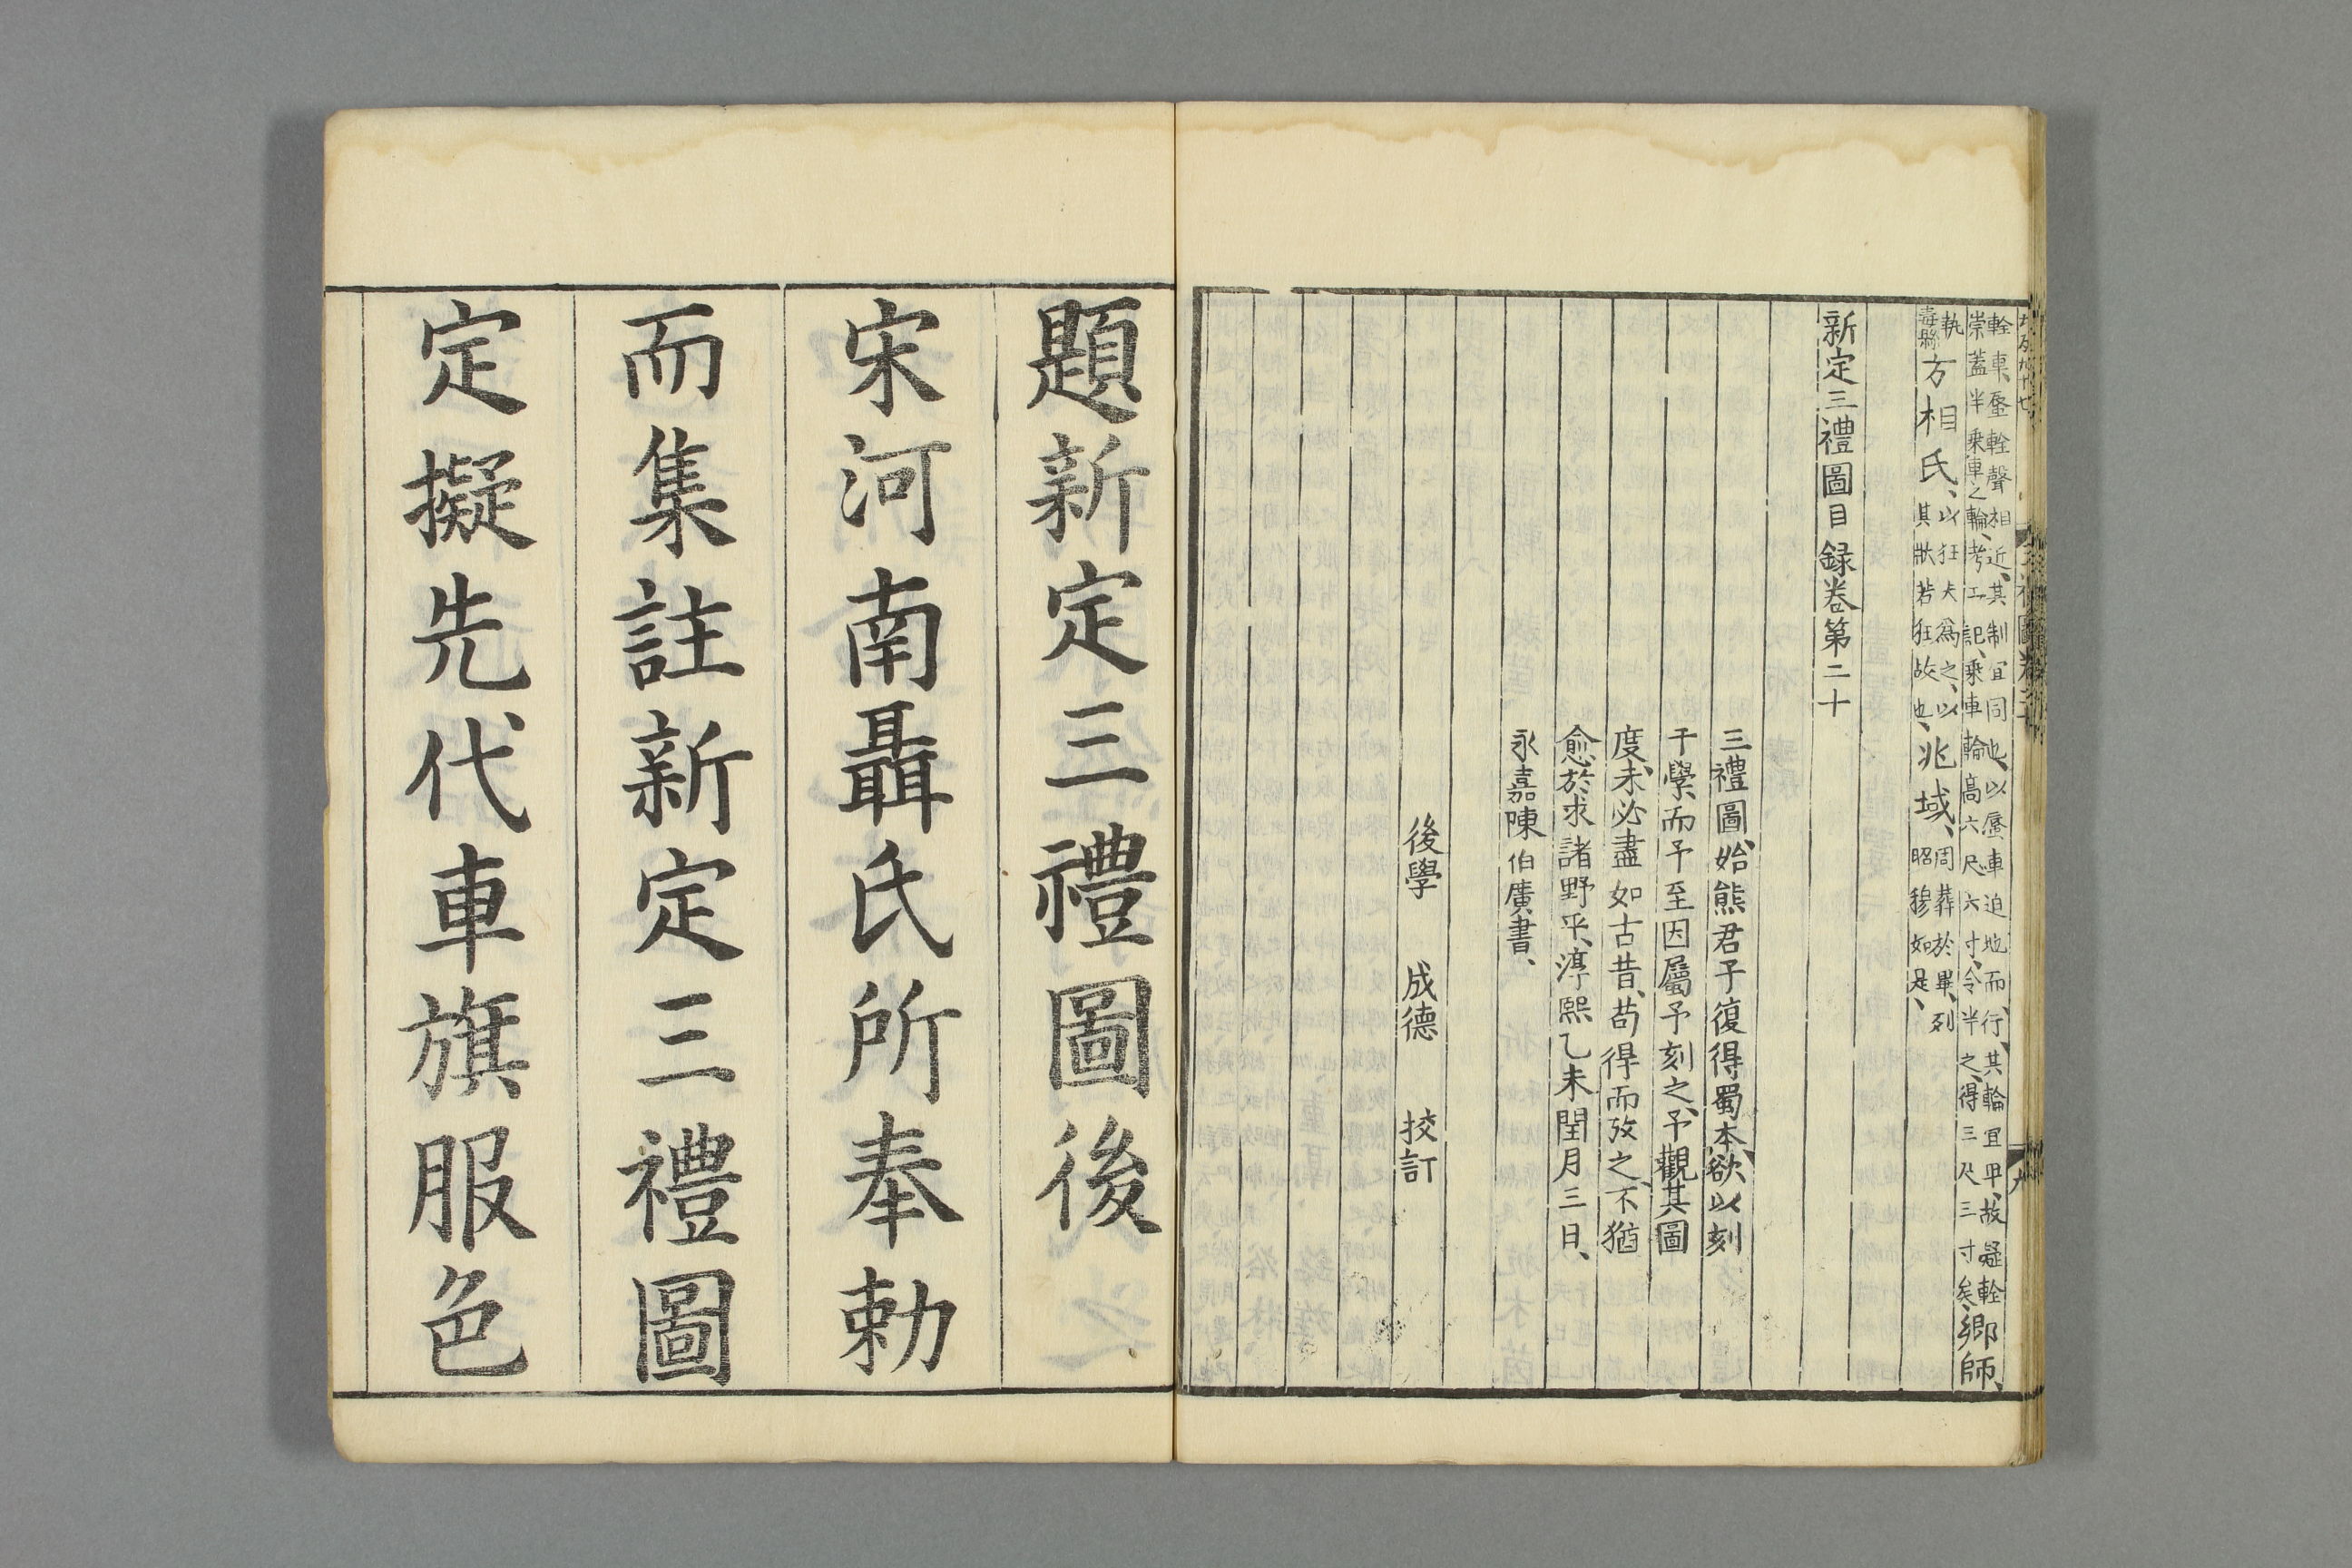 輇車、蜃輇聲相近、其制宜同也、以蜃車迫地而行、其輪宜卑、故疑輇
崇蓋半乗車之輪、考工記、乘車輪高六尺六寸、今半之、得三尺三寸矣、鄉師、
執
毒縣方相氏、以狂夫爲之、以
其狀若狂故也、兆域、周葬於畢、列
昭穆如是、
新定三禮圖目録卷第二十
三禮圖、始熊君子復得蜀本、欲以刻
于學、而予至因屬予刻之、予觀其圖
度、未必盡如古昔、苟得而攷之、不猶
愈於求諸野乎、淳熙乙未閏月三日、
永嘉陳伯廣書、
後學 成德 挍訂
題新定三禮圖後
宋河南聶氏所奉勅
而集註新定三禮圖
定擬先代車旗服色